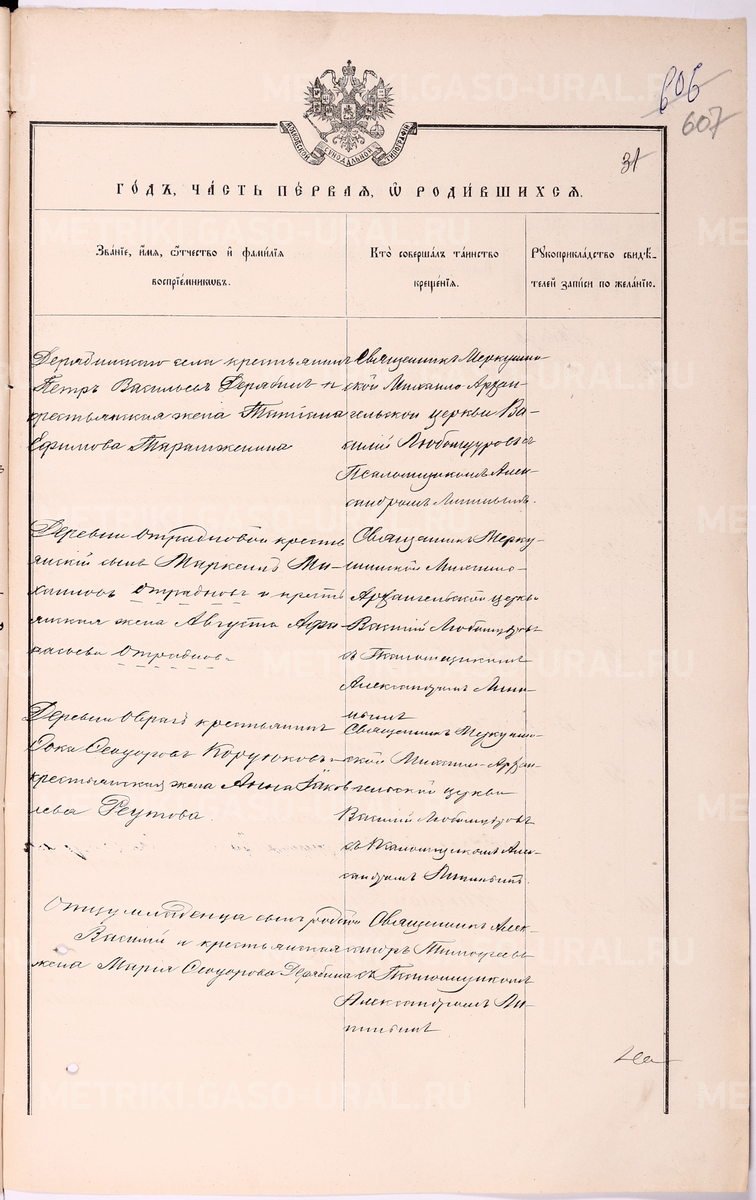 606
607
МОСКОВСКОЙ СѴНОДАЛЬНОЙ ТИПОГРАФІИ
31
ГО́ДЪ, ЧА́СТЬ ПЕ́РВАЯ, Ѡ РОДИ́ВШИХСЯ.
Зва́нїе, и҆́мя, ѻ҆́тчество и҆ фами́лїя
воспрїе́мниковъ.
Кто̀ соверша́лъ та́инство
креще́нїя.
Рꙋкоприкла́дство свидѣ́-
телей за́писи по жела́нїю.
Дерябинскаго села крестьянинъ
Петръ Васильевъ Дерябинъ и
крестьянская жена Татіана
Ефимова
Священникъ Меркушин-
ской Михаило-Архан-
гельской церкви Ва-
силій Любомудровъ съ
Псаломщикомъ Алек-
сандромъ
Деревни Отрадновой кресть-
янскій сынъ Маркеллъ Ми-
хаиловъ Отрадновъ и кресть-
янская жена Августа Афа-
насьева Отраднов-
Священникъ Мерку-
шинской Михаило-
Архангельской церкви
Василій Любомудровъ
съ Псаломщикомъ
Александромъ
Деревни Оврагъ крестьянинъ
Ѳеодоровъ Корчюковъ и
крестьянская жена Анна Іаков-
лева Реутова
Священникъ Меркушин-
ской Михаило-Архан-
гельской церкви
Василій Любомудровъ
съ Псаломщикомъ Алек-
сандромъ
Отцу младенца сынъ родной
Василій и крестьянская
жена Марія Ѳеодорова Дерябина
Священникъ Алек-
сандръ Тимофеевъ
съ Псаломщикомъ
Александромъ
METRIKI.GASO-URAL.RU